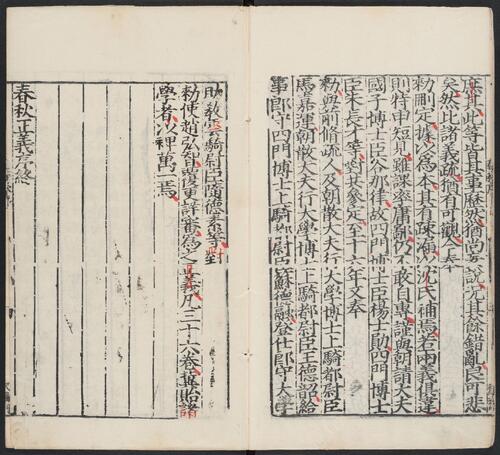 耳此等皆其事歷然猶尚妄說況其餘錯亂良可悲
矣然比諸義疏猶有可觀今奉
勑刪定據以爲本其有疎漏以沈氏補焉若兩義俱違
則特申短見雖課率庸鄙仍不敢自專謹與朝請大夫
國子博士臣谷那律故四門博士臣楊士勛四門博士
臣朱長才等對共參定至十六年又奉
勑與前脩疏人及朝散大夫行大學博士上騎都尉臣
馬嘉運朝散大夫行大學博士上騎都尉臣王德韶給
事郎守四門博士上騎都尉臣蘇德融登仕郎守大學
助教雲騎尉臣隨德素等對
勑使趙弘智覆更詳審爲之正義凡三十六卷冀貽諸
學者以裨萬一焉
春秋正義序終